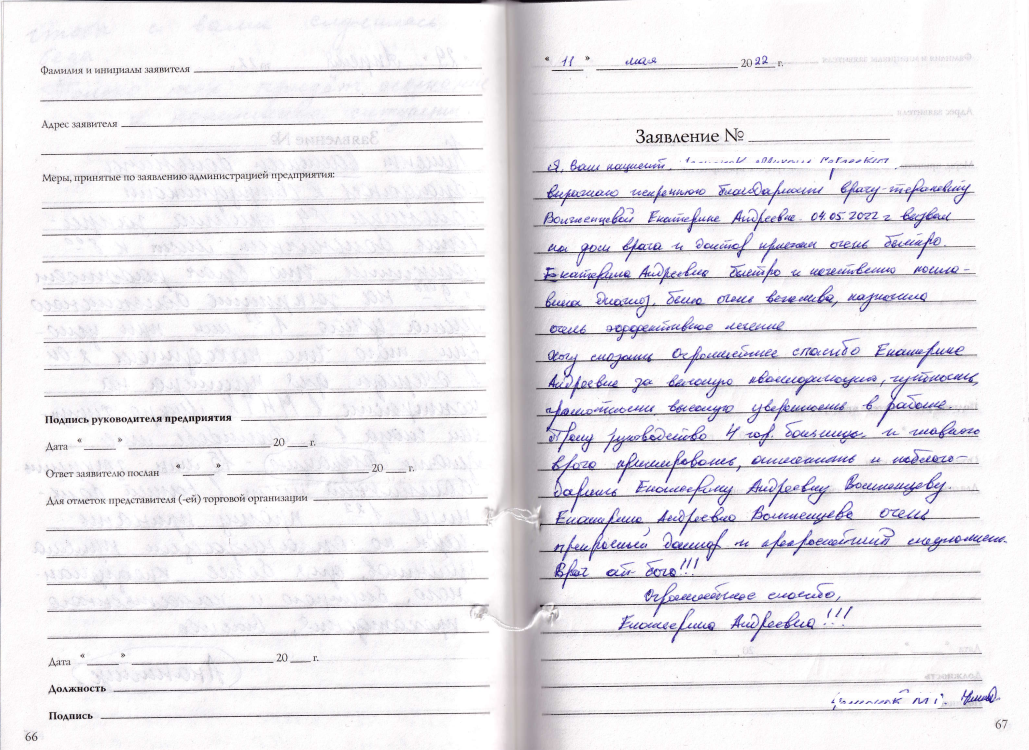 Фамилия и инициалы заявителя
Адрес заявителя
Меры, принятые по заявлению администрацией предприятия:
Подпись руководителя предприятия
Дата “ ” 20 г.
Ответ заявителю послан “ ” 20 г.
Для отметок представителя (-ей) торговой организации
Дата “ ” 20 г.
Должность
Подпись
66
“ 11 ” мая 2022 г.
Заявление №
Я, Ваш пациент,
выражаю искреннюю благодарность врачу-терапевту
Екатерине Андреевне. 04.05.2022 г вызвал
на дом врача и доктор приехал очень быстро.
Екатерина Андреевна быстро и качественно поста-
вила диагноз, была очень вежлива, назначила
очень эффективное лечение
Хочу сказать Огромнейшее спасибо Екатерине
Андреевне за высокую квалификацию, чуткость,
грамотность высокую уверенность в работе.
Прошу руководство 4 гор. больницы и главного
врача премировать, отметить и поблаго-
дарить Екатерину Андреевну
Екатерина Андреевна очень
прекрасный доктор и прекраснейший специалист.
Врач от бога!!!
Огромнейшее спасибо,
Екатерина Андреевна!!!
67